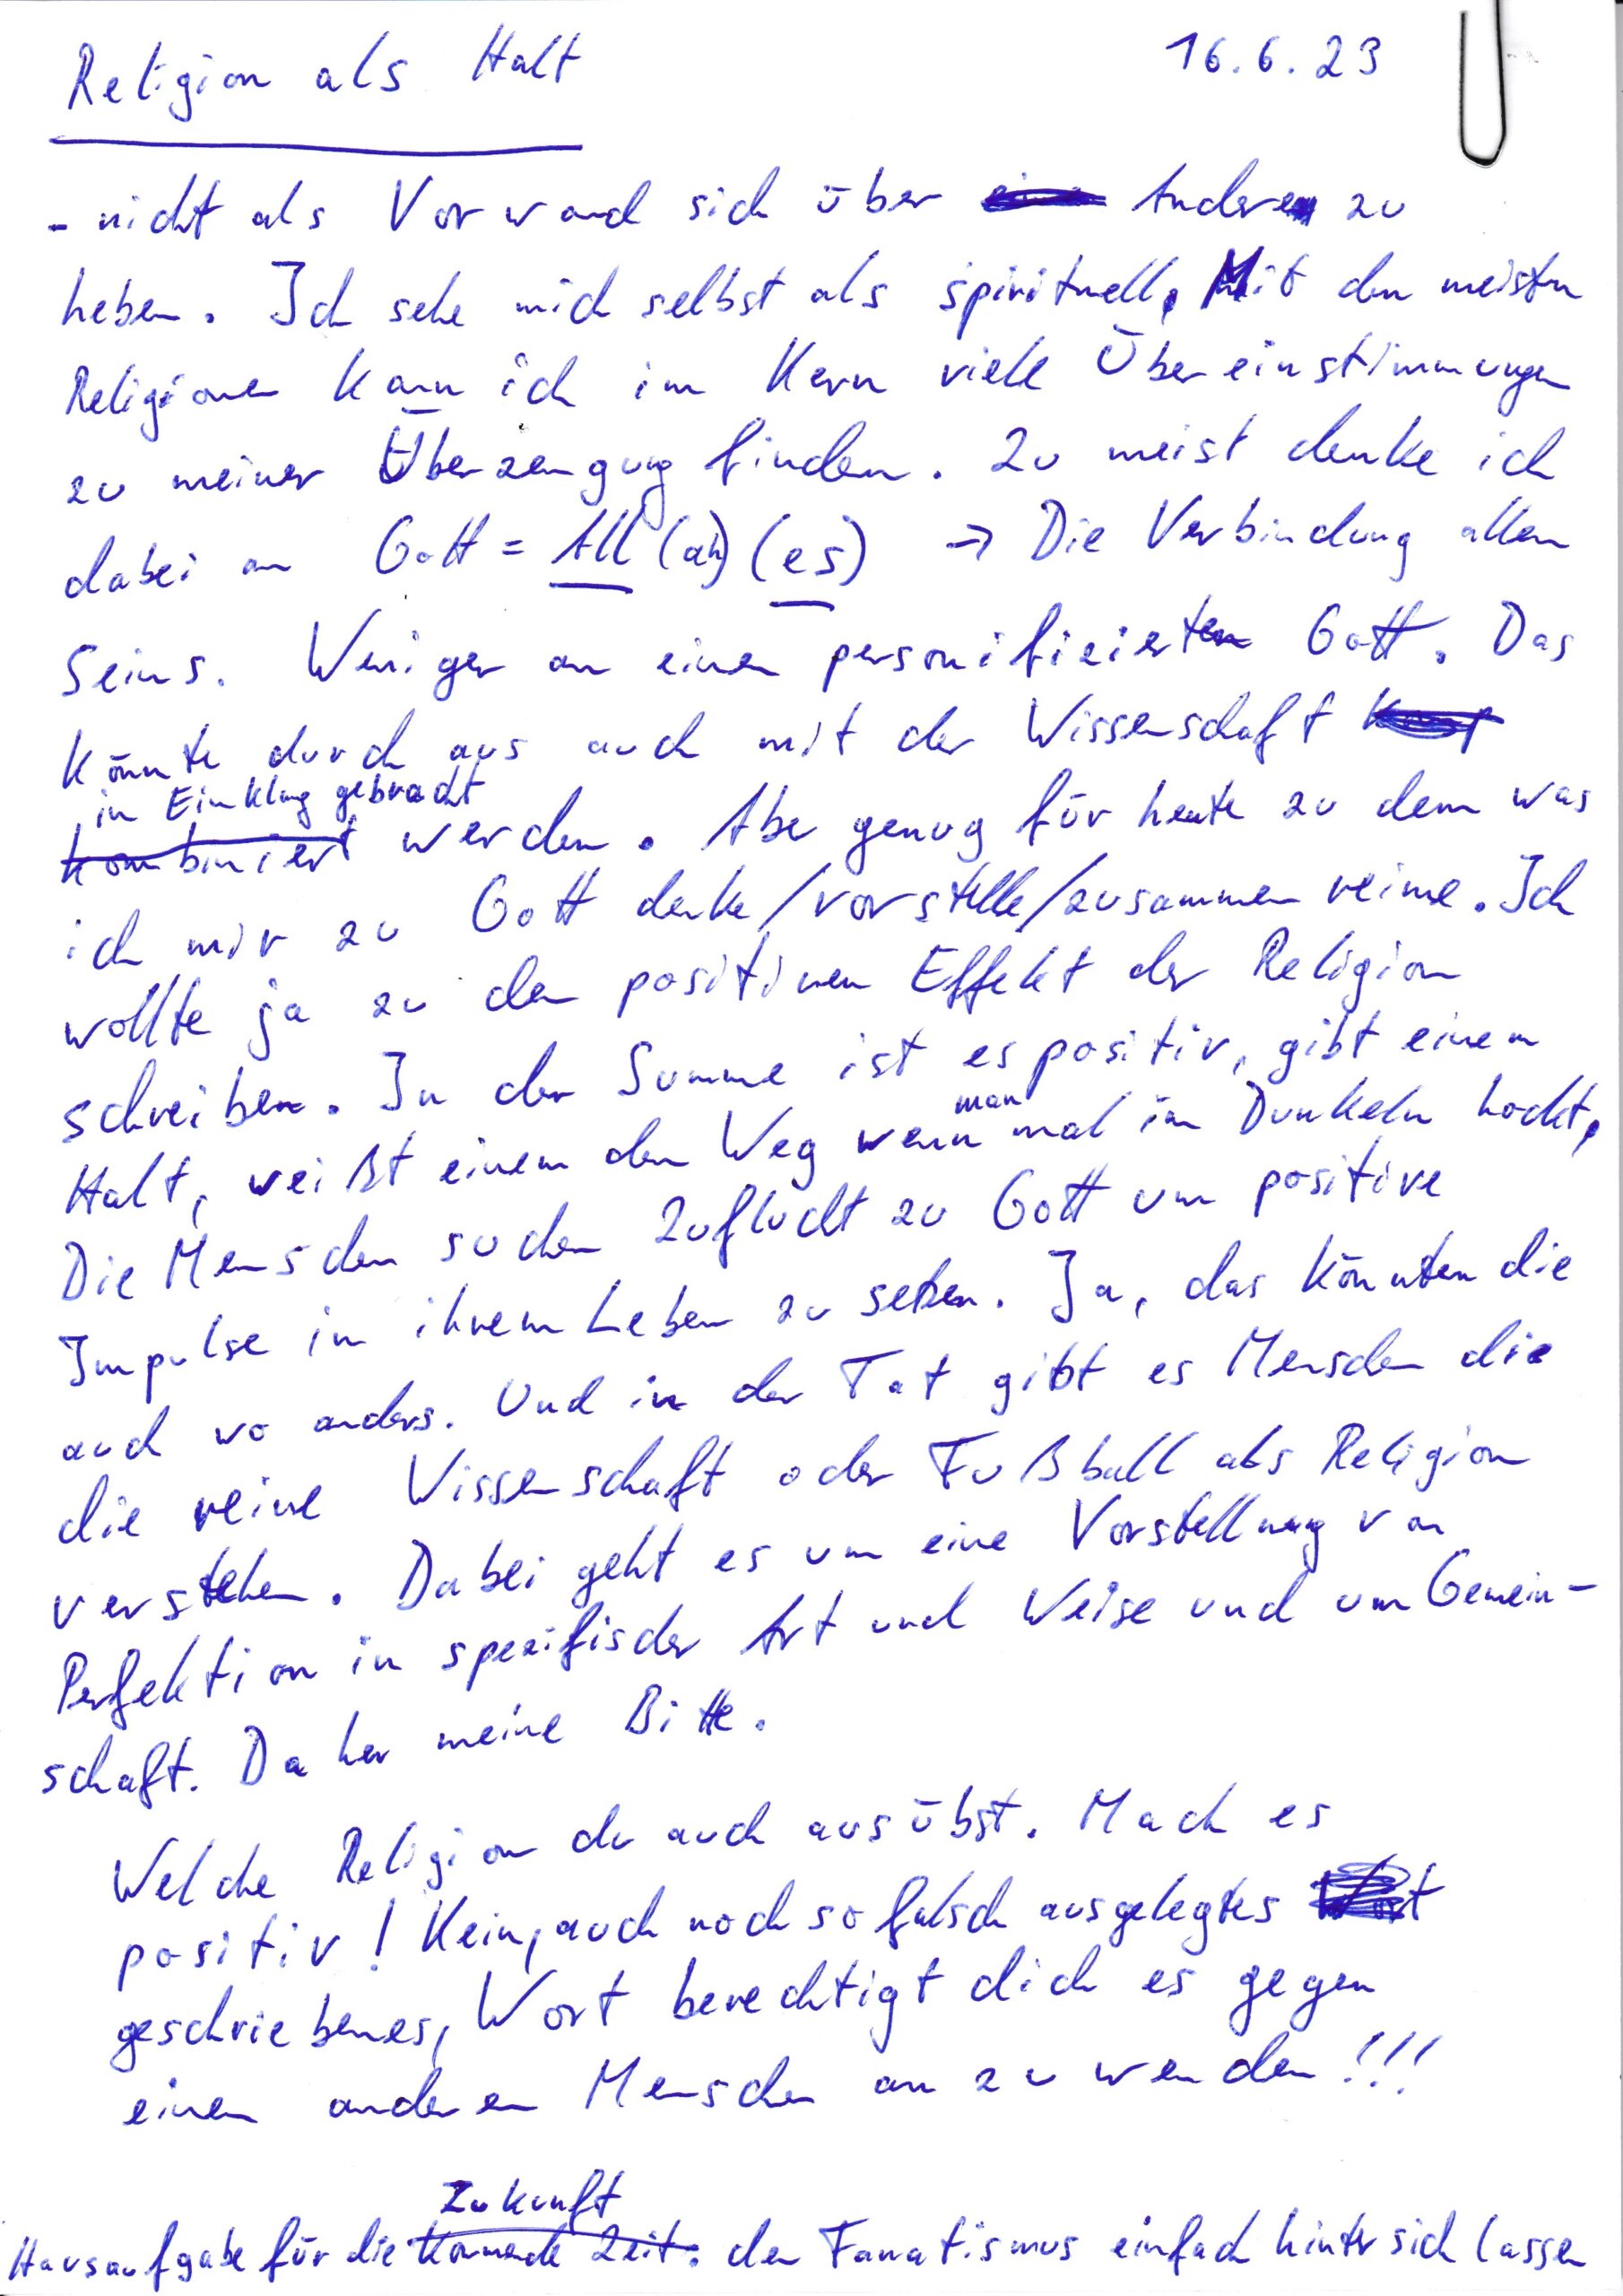 Religion als Halt 16.6.23
- nicht als Vorwand sich über Andere zu
heben. Ich sehe mich selbst als spirituell. Mit den meisten
Religionen kann ich im Kern viele Übereinstimmungen
zu meiner Überzeugung finden. Zu meist denke ich
dabei an Gott = All (ah) (es) → Die Verbindung allen
Seins. Weniger an einen personifizierten Gott. Das
könnte durch aus auch mit der Wissenschaft
in Einklang gebracht
kombiniert werden. Aber genug für heute zu dem was
ich mir zu Gott denke/vorstelle/zusammen reime. Ich
wollte ja zu den positiven Effekt der Religion
schreiben. In der Summe ist es positiv, gibt einem
Halt, weißt einem den Weg wenn man mal im Dunkeln hockt.
Die Menschen suchen Zuflucht zu Gott um positive
Impulse in ihrem Leben zu setzen. Ja, das könnten die
auch wo anders. Und in der Tat gibt es Menschen die
die reine Wissenschaft oder Fußball als Religion
verstehen. Dabei geht es um eine Vorstellung von
Perfektion in spezifischer Art und Weise und um Gemein-
schaft. Daher meine Bitte.
Welche Religion du auch ausübst. Mach es
positiv! Kein, auch noch so falsch ausgelegtes Wort
geschriebenes, Wort berechtigt dich es gegen
einen anderen Menschen an zu wenden!!!
Zukunft
Hausaufgabe für die kommende Zeit: den Fanatismus einfach hinter sich lassen